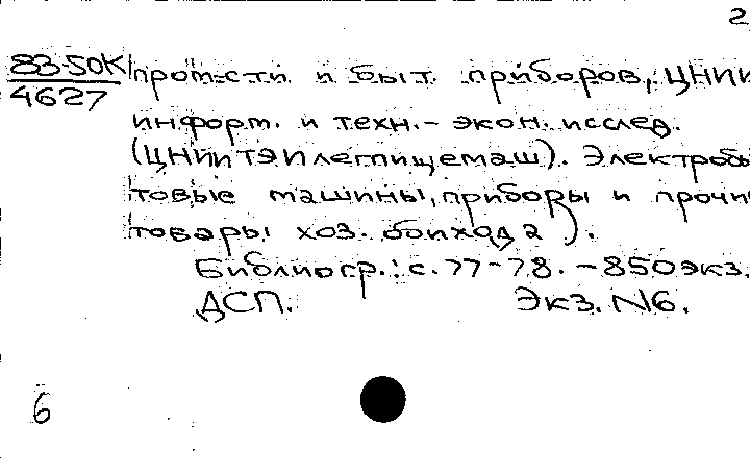 2
83-50К
4627
пром-сти и быт. приборов, ЦНИИ
информ. и техн.-экон. исслед.
(ЦНИИТЭИлегпищемаш). Электробы
товые машины, приборы и прочи
товары хоз. обихода).
Библиогр.: с. 77-78. - 850 экз.
ДСП. Экз. N6.
6